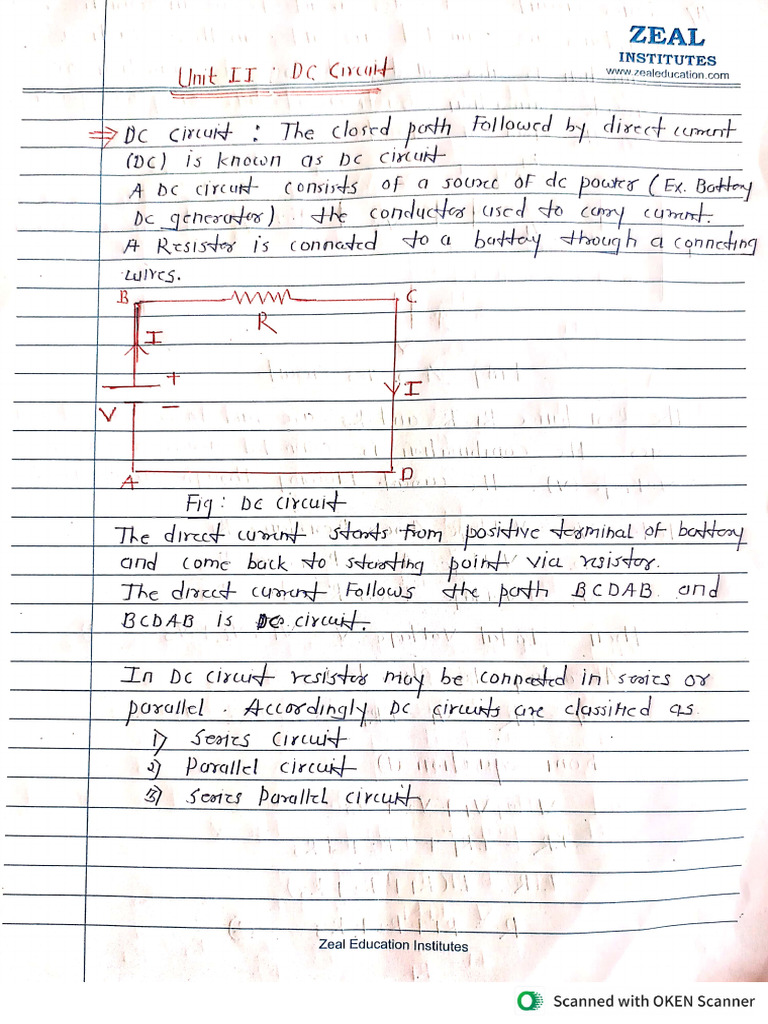 ZEAL
INSTITUTES
www.zealeducation.com
Unit II : DC Circuit
⇒ DC circuit : The closed path followed by direct current
(DC) is known as DC circuit
A DC circuit consists of a source of dc power (Ex. Battery
DC generator) the conductor used to carry current.
A Resistor is connated to a battery through a conneting
wires.
B
C
R
I
+
I
V
-
A
D
Fig : DC circuit
The direct current starts from positive terminal of battery
and come back to starting point via resistor.
The direct current follows the path BCDAB and
BCDAB is DC circuit.
In DC circuit resistor may be connected in series or
parallel. Accordingly DC circuits are classified as
1) Series circuit
2) Parallel circuit
3) Series Parallel circuit
Zeal Education Institutes
Scanned with OKEN Scanner